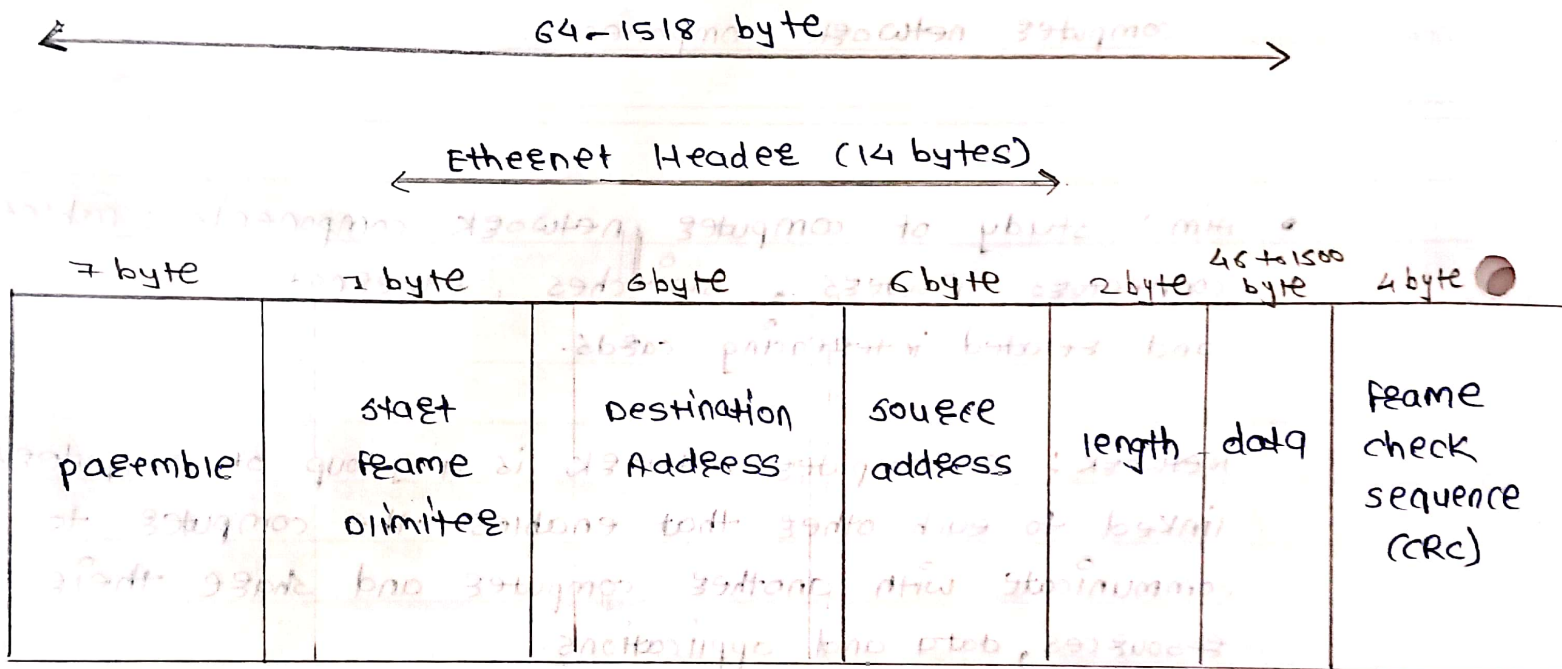 64-1518 byte
Ethernet Header (14 bytes)
7 byte
1 byte
6 byte
6 byte
2 byte
46 to 1500
byte
4 byte
paremble
start
frame
Dlimiter
Destination
Address
source
address
length
data
frame
check
sequence
(CRC)